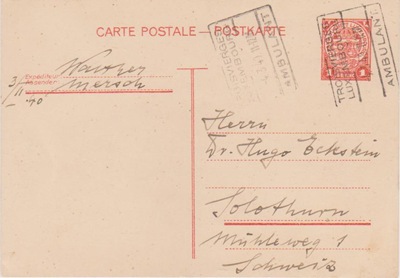 CARTE POSTALE — POSTKARTE
AMBULANT
TROISVIERGES
LUXEMBOURG
AMBULANT
1
Expéditeur
Absender
Walther
Mersch
3/11
'40
Herrn
Dr. Hugo Eckstein
Solothurn
Mühleweg 1
Schweiz